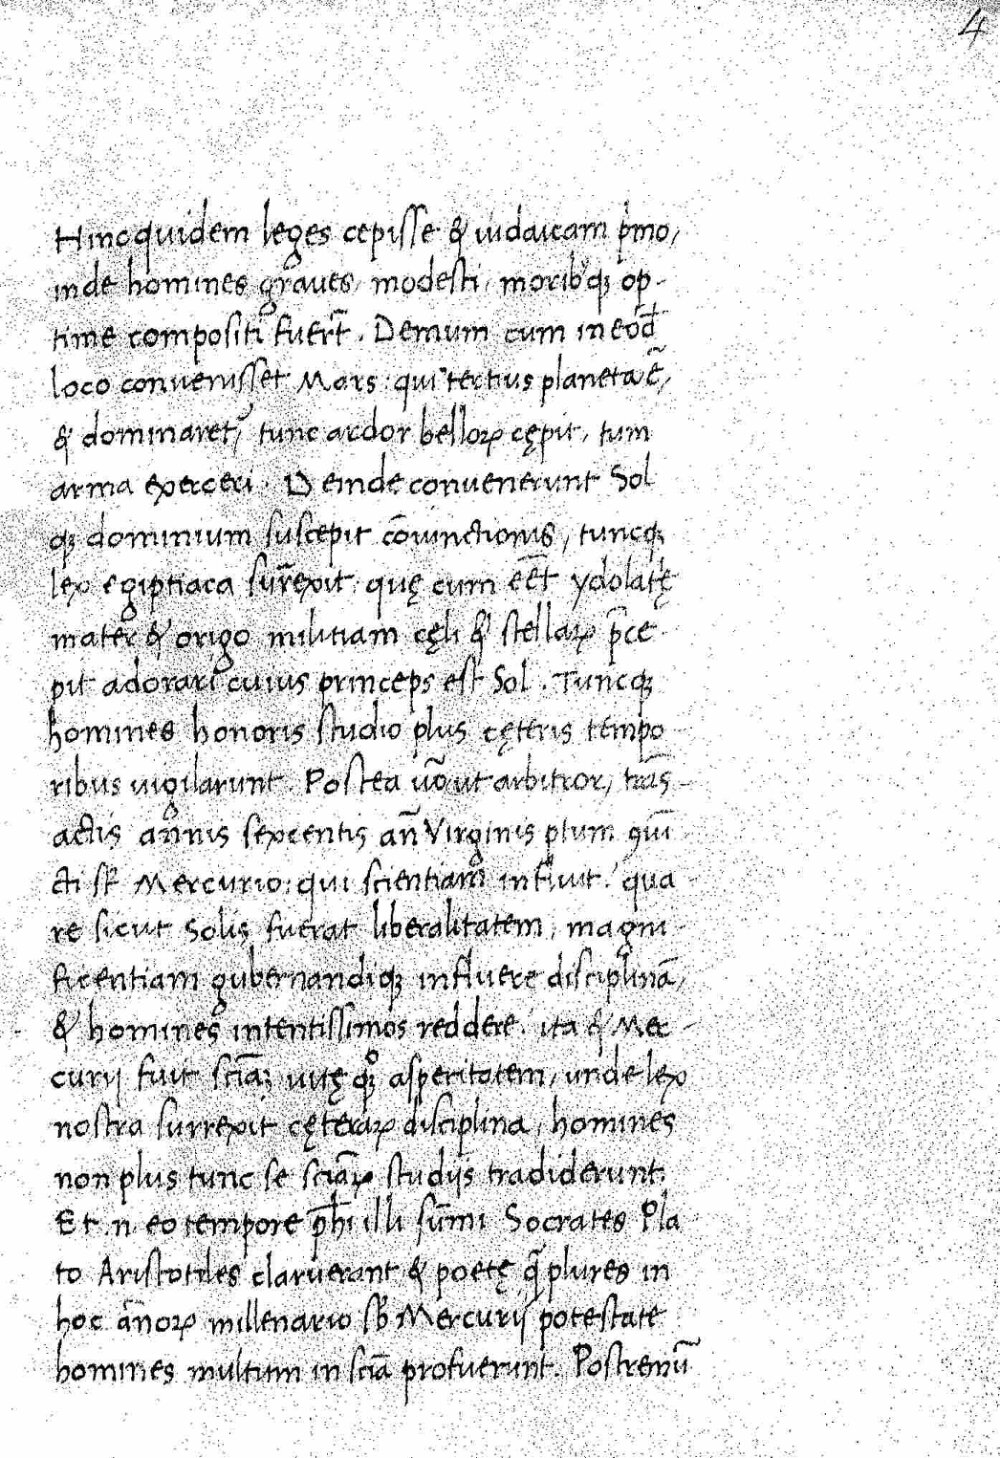 4
Hinc quidem leges cepisse & iudaicam p̍mo,
inde homines graves, modesti, morib'qꝫ op-
time compositi fuer̄t. Demum cum in eod̄
loco convenisset Mars: qui tertius planeta ē,
& dominaret', tunc ardor belloꝝ cępit, tum
arma exerceri. Deinde convenerunt Sol
qꝫ dominium suscepit cōiunctionis, tuncqꝫ
lex egiptiaca surrexit: quę cum eēt ydolat̍ę
mater & origo militiam cęli & stellaꝝ p̄ce-
pit adorari cuius princeps est Sol. Tuncqꝫ
homines honoris studio plus cęteris tempo
ribus vigilarunt. Postea uō ut arbitror, trās-
actis annis sexcentis an̄ Virginis ptum ꝯiū-
cti st̄ Mercurio: qui scientiam influit. qua-
re sicut Solis fuerat liberalitatem, magni-
ficentiam gubernandiqꝫ influere disciplinā,
& homines intentissimos reddere. ita & Mer-
curij fuit sciāꝫ uitę qꝫ asperitatem, unde lex
nostra surrexit cęteraꝝ disciplina, homines
non plus tunc se sciāꝝ studijs tradiderunt.
Et in eo tempore ph̄i illi sūmi Socrates Pla
to Aristotiles claruerant & poetę q̄ plures in
hoc ān̄oꝝ millenario sb̄ Mercurij potestate
homines multum in sciā profuerunt. Postremū